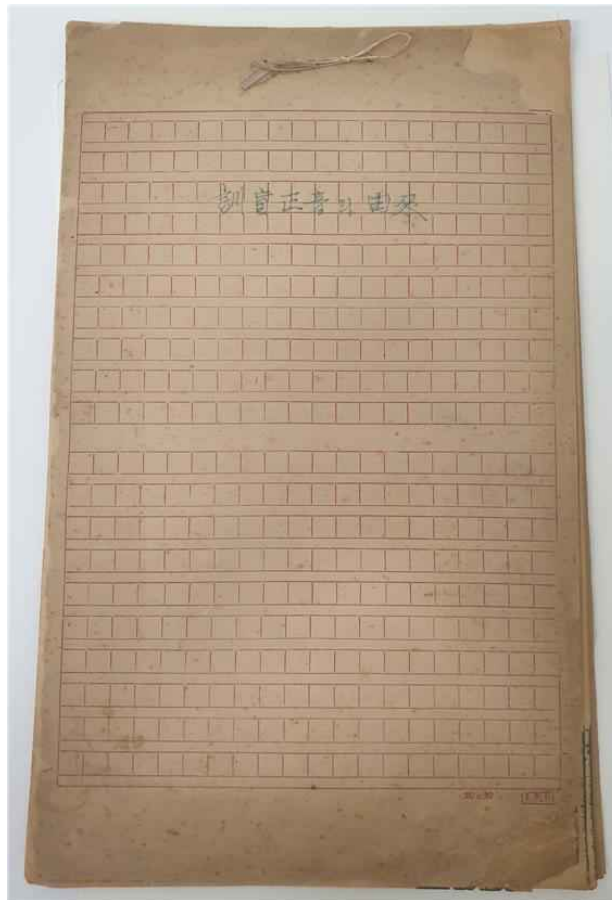 訓盲正音의 由來
20×20